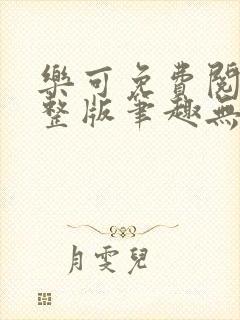 樂可免費閱
整版筆趣無
月雯兒